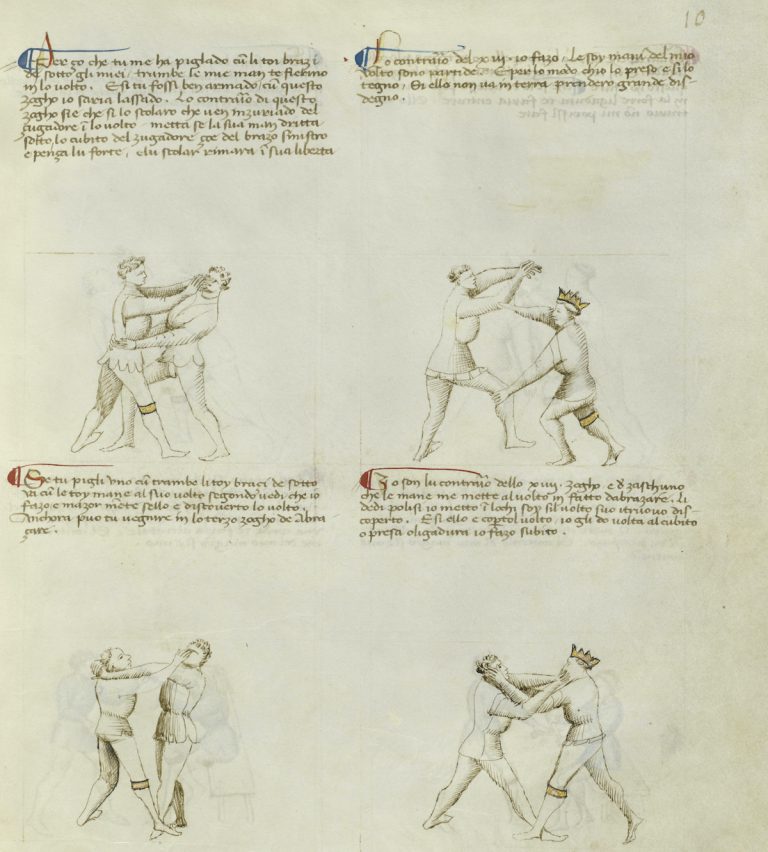 10
Per ço che tu me ha pigliado cū li toy brazi
de sotto gli miei, trambe le mie man te fierino
in lo volto. E si tu fossi ben armado, cū questo
zogho io saria lassado. Lo contrario di questo
zogho si e che si lo scolaro che uen inzuriado del
zugadore ī lo volto, metta se la sua man dritta
sotto lo cubito del zugadore çoe del brazo sinistro
e penza lu forte, e lu scolar rimara ī sua liberta
Lo contrario del xvij. io fazo, Le soy mani del mio
volto sono partide. E per lo modo ch'io lo preso e si lo
tegno, Si ello non va in terra prendero grande dis-
degno.
Se tu pigli uno cū trambe li toy braci de sotto
va cū le toy mane al suo volto segondo vedi che io
fazo e mazor mete sello e discoverto lo volto.
Anchora poy tu vegnire in lo terzo zogho de abra
çare.
Io son lu contrario dello xviij. zogho e d zaschuno
che le mane me mette al volto in fatto dabrazare. Li
dedi polisi io metto ī lochi soy sil volto suo i truovo dis-
coperto. E si ello e coptol volto, io gli do volta al cubito
o presa o ligadura io fazo subito.